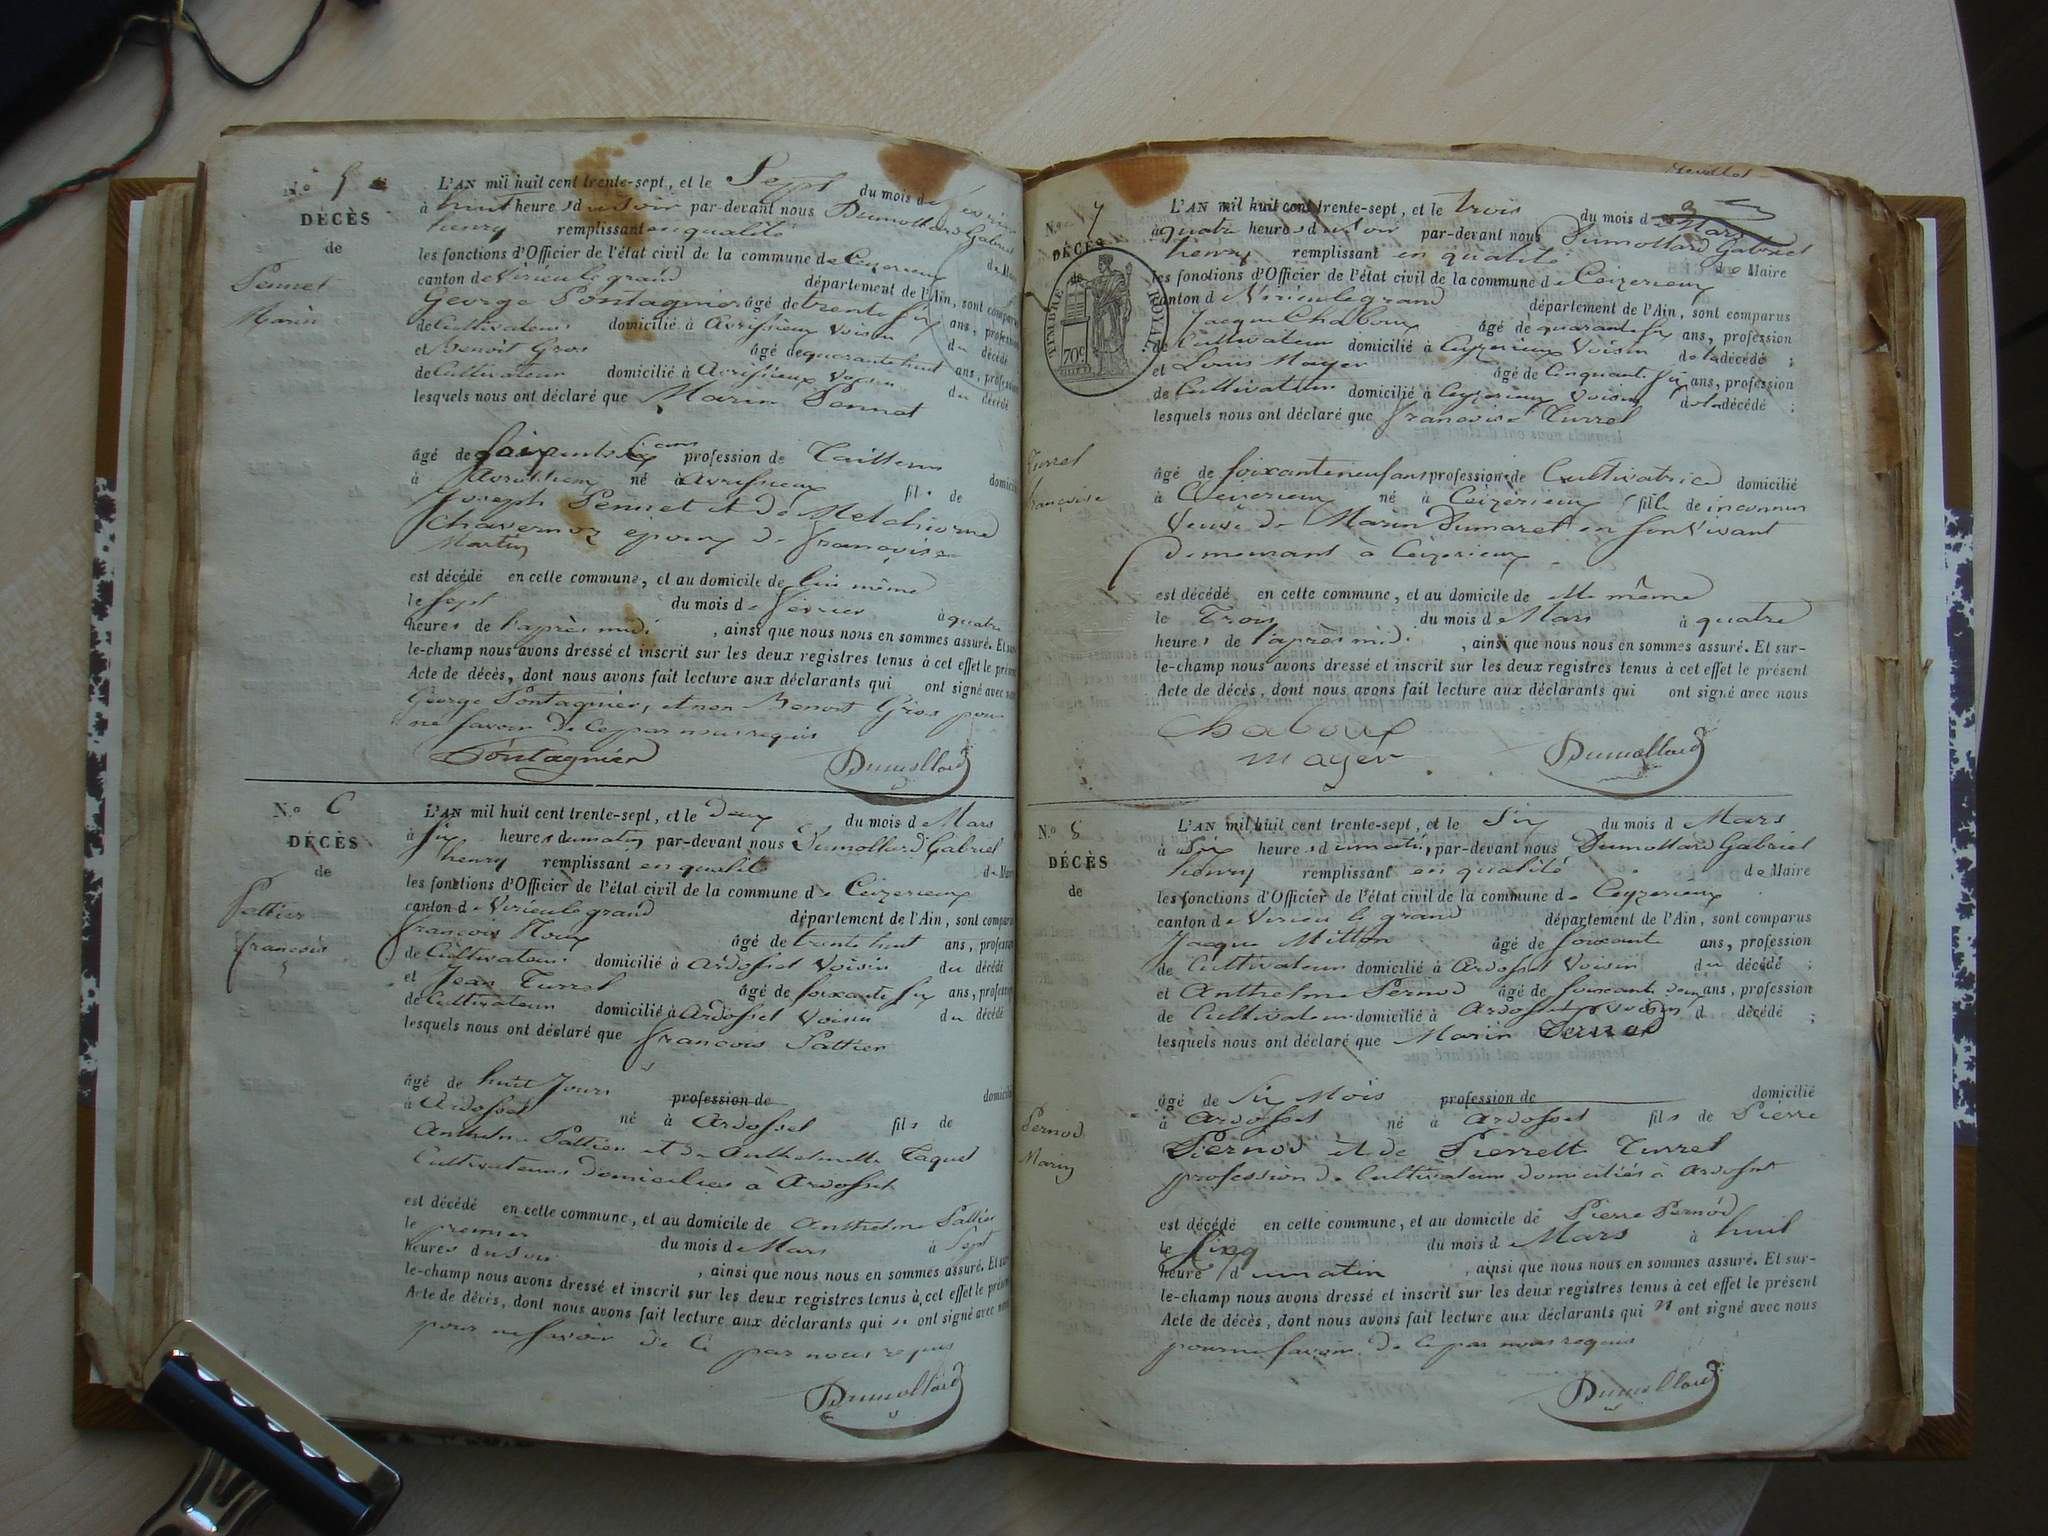 N.º 5
DÉCÈS
de
Pennet
Marin
L'AN mil huit cent trente-sept, et le Sept du mois de février
à huit heures du soir par-devant nous Dumollard Gabriel
henry remplissant en qualité de Maire
les fonctions d'Officier de l'état civil de la commune de Ceyzerieux
canton de Virieu le grand département de l'Ain, sont comparus
George Pontagnier âgé de trente six ans, profession
de Cultivateur domicilié à Avrissieux Voisin du décédé
et Benoit Gros âgé de quarante huit ans, profession
de Cultivateur domicilié à Avrissieux Voisin du décédé
lesquels nous ont déclaré que Marin Pennet
âgé de soixante six ans profession de Tailleur domicilié
à Avrissieux né à Avrissieux fils de
Joseph Pennet et de Melchiorne
Chavernoz epoux de françoise
Martin
est décédé en cette commune, et au domicile de lui même
le sept du mois de février à quatre
heures de l'après midi, ainsi que nous nous en sommes assuré. Et sur-
le-champ nous avons dressé et inscrit sur les deux registres tenus à cet effet le présent
Acte de décès, dont nous avons fait lecture aux déclarants qui ont signé avec nous
George Pontagnier, et non Benoit Gros pour
ne savoir de ce par nous requis
Pontagnier Dumollard
N.º 6
DÉCÈS
de
Pattier
françois
L'AN mil huit cent trente-sept, et le deux du mois de Mars
à six heures du matin par-devant nous Dumollard Gabriel
henry remplissant en qualité de Maire
les fonctions d'Officier de l'état civil de la commune de Ceizerieux
canton de Virieu le grand département de l'Ain, sont comparus
françois Roux âgé de trente huit ans, profession
de Cultivateur domicilié à Ardosset Voisin du décédé
et Jean Turrel âgé de soixante six ans, profession
de Cultivateur domicilié à Ardosset Voisin du décédé
lesquels nous ont déclaré que françois Pattier
âgé de huit Jours profession de domicilié
à Ardosset né à Ardosset fils de
Anthelme Pattier et de Anthelmette Taquet
Cultivateurs domiciliés à Ardosset
est décédé en cette commune, et au domicile de Anthelme Pattier
le premier du mois de Mars à Sept
heures du soir, ainsi que nous nous en sommes assuré. Et sur-
le-champ nous avons dressé et inscrit sur les deux registres tenus à cet effet le présent
Acte de décès, dont nous avons fait lecture aux déclarants qui n'ont signé avec nous
pour ne savoir de ce par nous requis
Dumollard
N.º 7
DÉCÈS
de
TIMBRE ROYAL
70c
Turrel
françoise
L'AN mil huit cent trente-sept, et le trois du mois de Mars
à quatre heures du soir par-devant nous Dumollard Gabriel
henry remplissant en qualité de Maire
les fonctions d'Officier de l'état civil de la commune de Ceizerieux
canton de Virieu le grand département de l'Ain, sont comparus
Jacque Chaboux âgé de quarante six ans, profession
de Cultivateur domicilié à Ceyzerieux Voisin de la décédé ;
et Louis Mayer âgé de Cinquante six ans, profession
de Cultivateur domicilié à Ceyzerieux Voisin de la décédé ;
lesquels nous ont déclaré que françoise Turrel
âgé de soixante neuf ans profession de Cultivatrice domicilié
à Ceyzerieux né à Ceizerieux fille de inconnu
Veuve de Marin Dumaret en son vivant
demeurant à Ceizerieux
est décédé en cette commune, et au domicile de elle même
le Trois du mois de Mars à quatre
heures de l'après midi, ainsi que nous nous en sommes assuré. Et sur-
le-champ nous avons dressé et inscrit sur les deux registres tenus à cet effet le présent
Acte de décès, dont nous avons fait lecture aux déclarants qui ont signé avec nous
Chaboux
mayer Dumollard
N.º 8
DÉCÈS
de
Pernod
Marin
L'AN mil huit cent trente-sept, et le Six du mois de Mars
à Six heures du matin par-devant nous Dumollard Gabriel
henry remplissant en qualité de Maire
les fonctions d'Officier de l'état civil de la commune de Ceyzerieux
canton de Virieu le grand département de l'Ain, sont comparus
Jacque Mitton âgé de soixante ans, profession
de Cultivateur domicilié à Ardosset Voisin du décédé ;
et Anthelme Pernod âgé de soixante deux ans, profession
de Cultivateur domicilié à Ardosset voisin d décédé ;
lesquels nous ont déclaré que Marin Pernod
âgé de Six Mois profession de domicilié
à Ardosset né à Ardosset fils de Pierre
Piernod et de Pierrette Turrel
profession de Cultivateur domiciliés à Ardosset
est décédé en cette commune, et au domicile de Pierre Pernod
le Cinq du mois de Mars à huit
heure du matin, ainsi que nous nous en sommes assuré. Et sur-
le-champ nous avons dressé et inscrit sur les deux registres tenus à cet effet le présent
Acte de décès, dont nous avons fait lecture aux déclarants qui n'ont signé avec nous
pour ne savoir de ce par nous requis
Dumollard